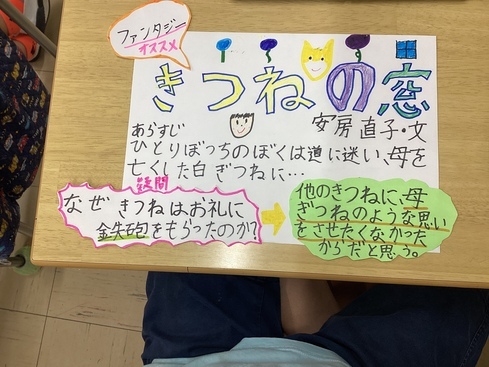 ファンタジー
オススメ
きつねの窓
安房 直子・文
あらすじ
ひとりぼっちのぼくは道に迷い、母を
亡くした白ぎつねに…
疑問
なぜ きつねは、お礼に
鉄砲をもらったのか?
他のきつねに、母
ぎつねのような思い
をさせたくなかった
からだと思う。